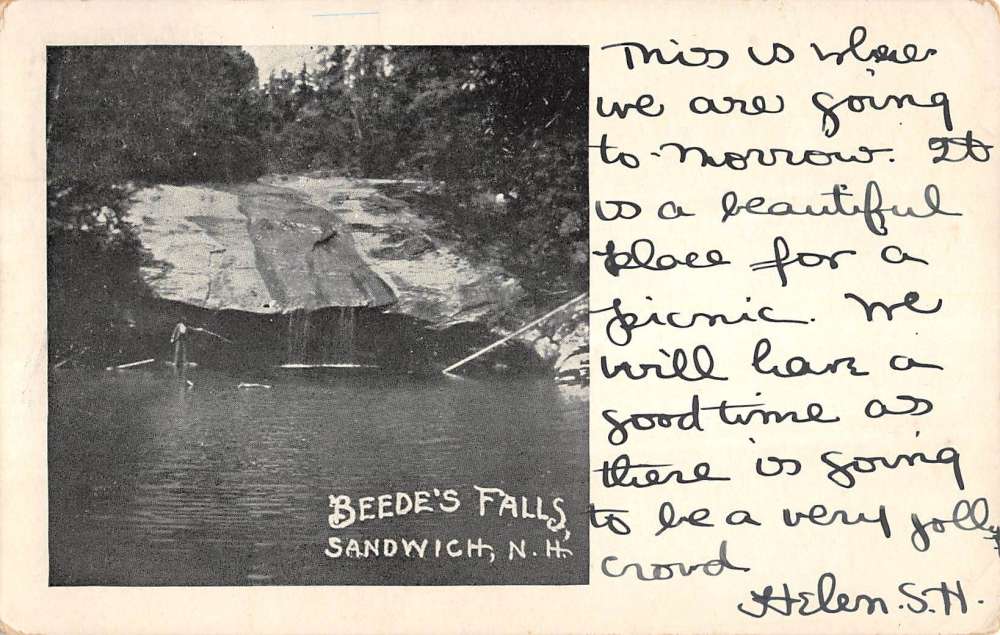 BEEDE'S FALLS,
SANDWICH, N.H.
This is where
we are going
to-morrow. It
is a beautiful
place for a
picnic. We
will have a
good time as
there is going
to be a very jolly
crowd
Helen.S.H.